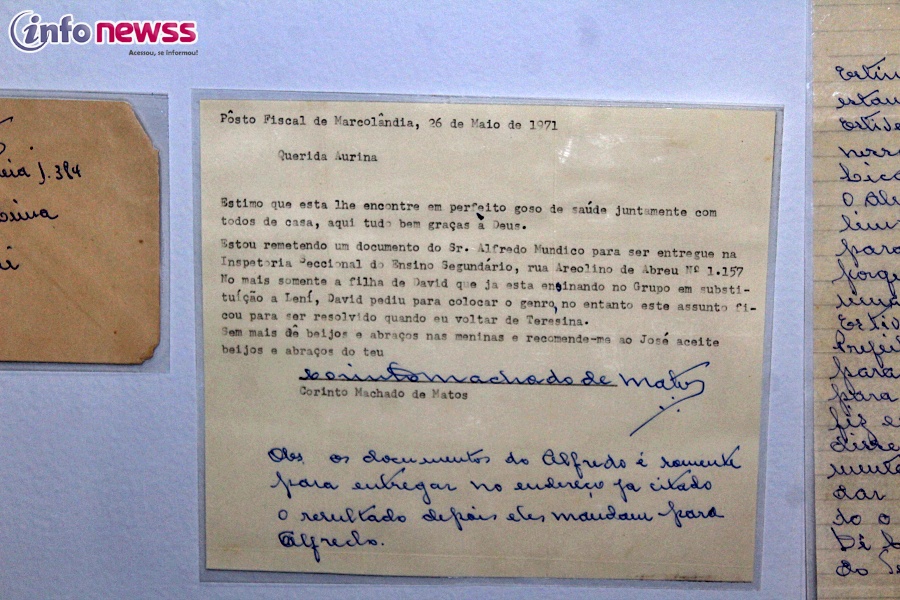 info newss
Acessou, se informou!
j. 384
Pôsto Fiscal de Marcolândia, 26 de Maio de 1971
Querida Aurina
Estimo que esta lhe encontre em perfeito goso de saúde juntamente com
todos de casa, aqui tudo bem graças à Deus.
Estou remetendo um documento do Sr. Alfredo Mundico para ser entregue na
Inspetoria Seccional do Ensino Segundário, rua Areolino de Abreu Nº 1.157
No mais somente a filha de David que ja esta ensinando no Grupo em substi-
tuíção a Lení, David pediu para colocar o genro, no entanto este assunto fi-
cou para ser resolvido quando eu voltar de Teresina.
Sem mais dê beijos e abraços nas meninas e recomende-me ao José aceite
beijos e abraços do teu
Corinto Machado de Matos
Corinto Machado de Matos
Obs. os documentos do Alfredo é somente
para entregar no endereço ja citado
o resultado depois eles mandam para
Alfredo.
estau
para
porque
para
para
dar
do o